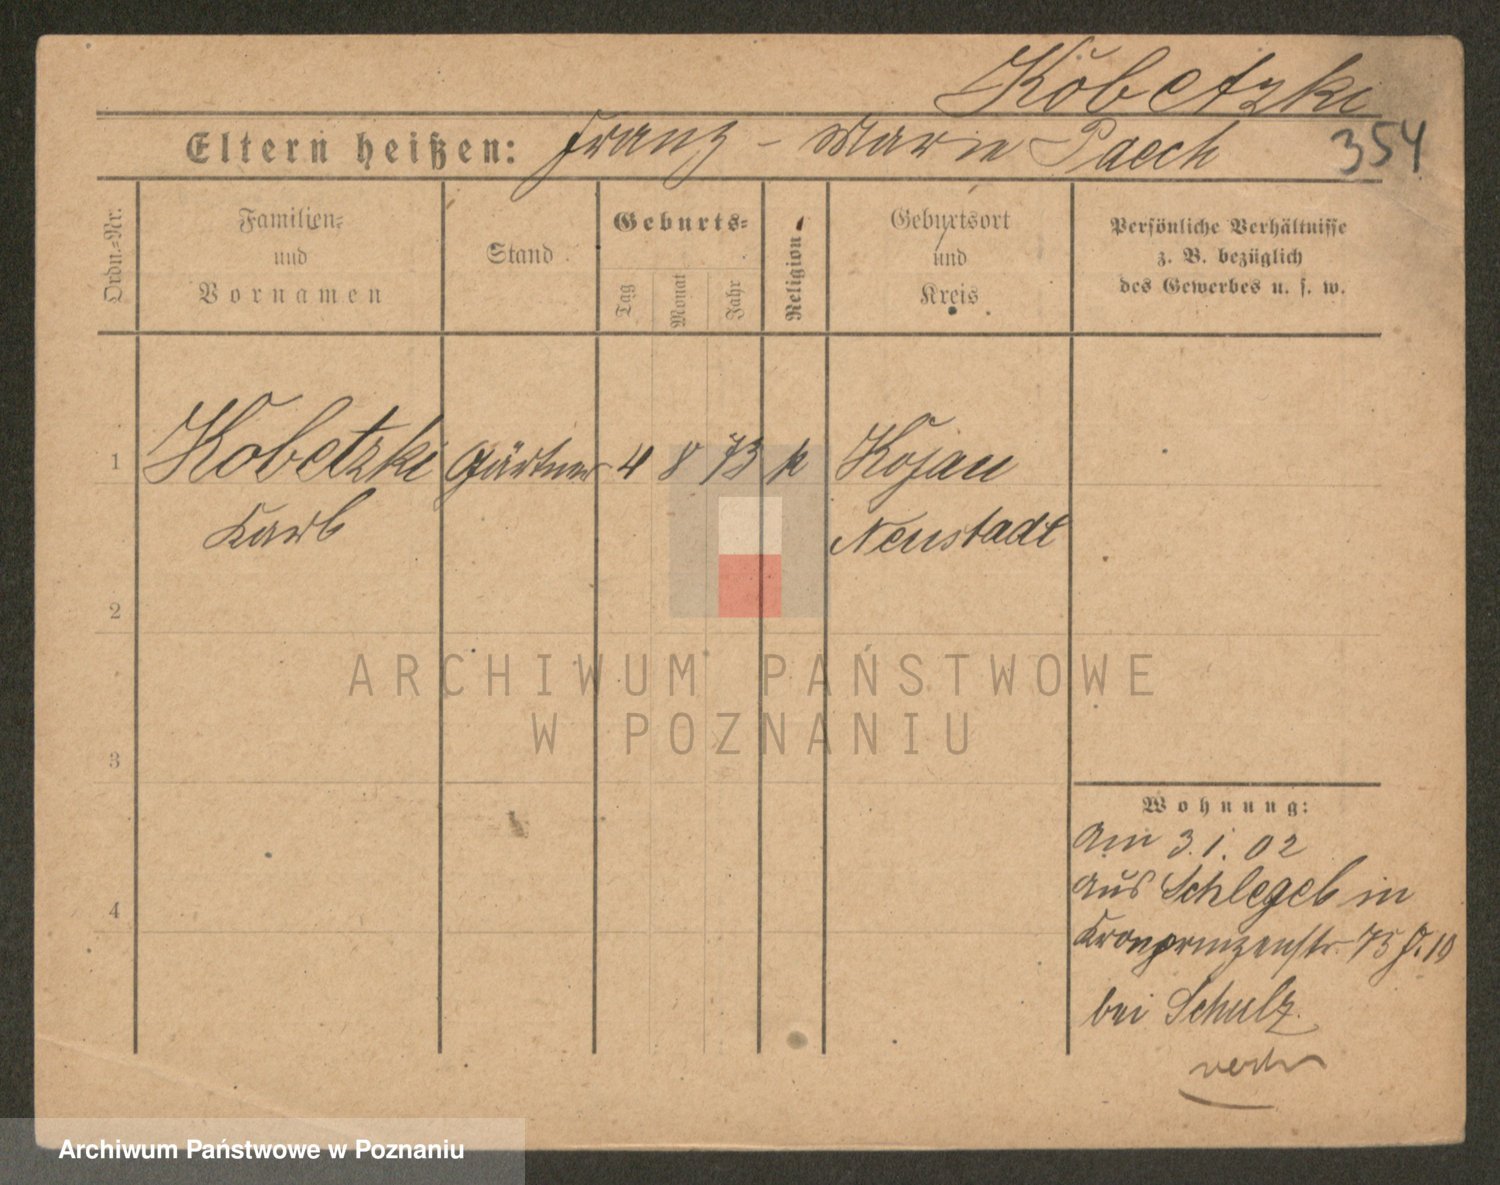 Kobetzki
Eltern heißen: Franz - Marie Paech
354
Ordn.=Nr.
Familien=
und
Vornamen
Stand
Geburts=
Tag
Monat
Jahr
Religion
Geburtsort
und
Kreis
Persönliche Verhältnisse
z. B. bezüglich
des Gewerbes u. s. w.
1 Kobetzki Gärtner 4 8 73 k Kosan
Karl Neustadt
2
3
4
Wohnung:
Am 3. 1. 02
aus Schlegel in
Kronprinzenstr. 75 H. 10
bei Schulz
ARCHIWUM PAŃSTWOWE
W POZNANIU
Archiwum Państwowe w Poznaniu